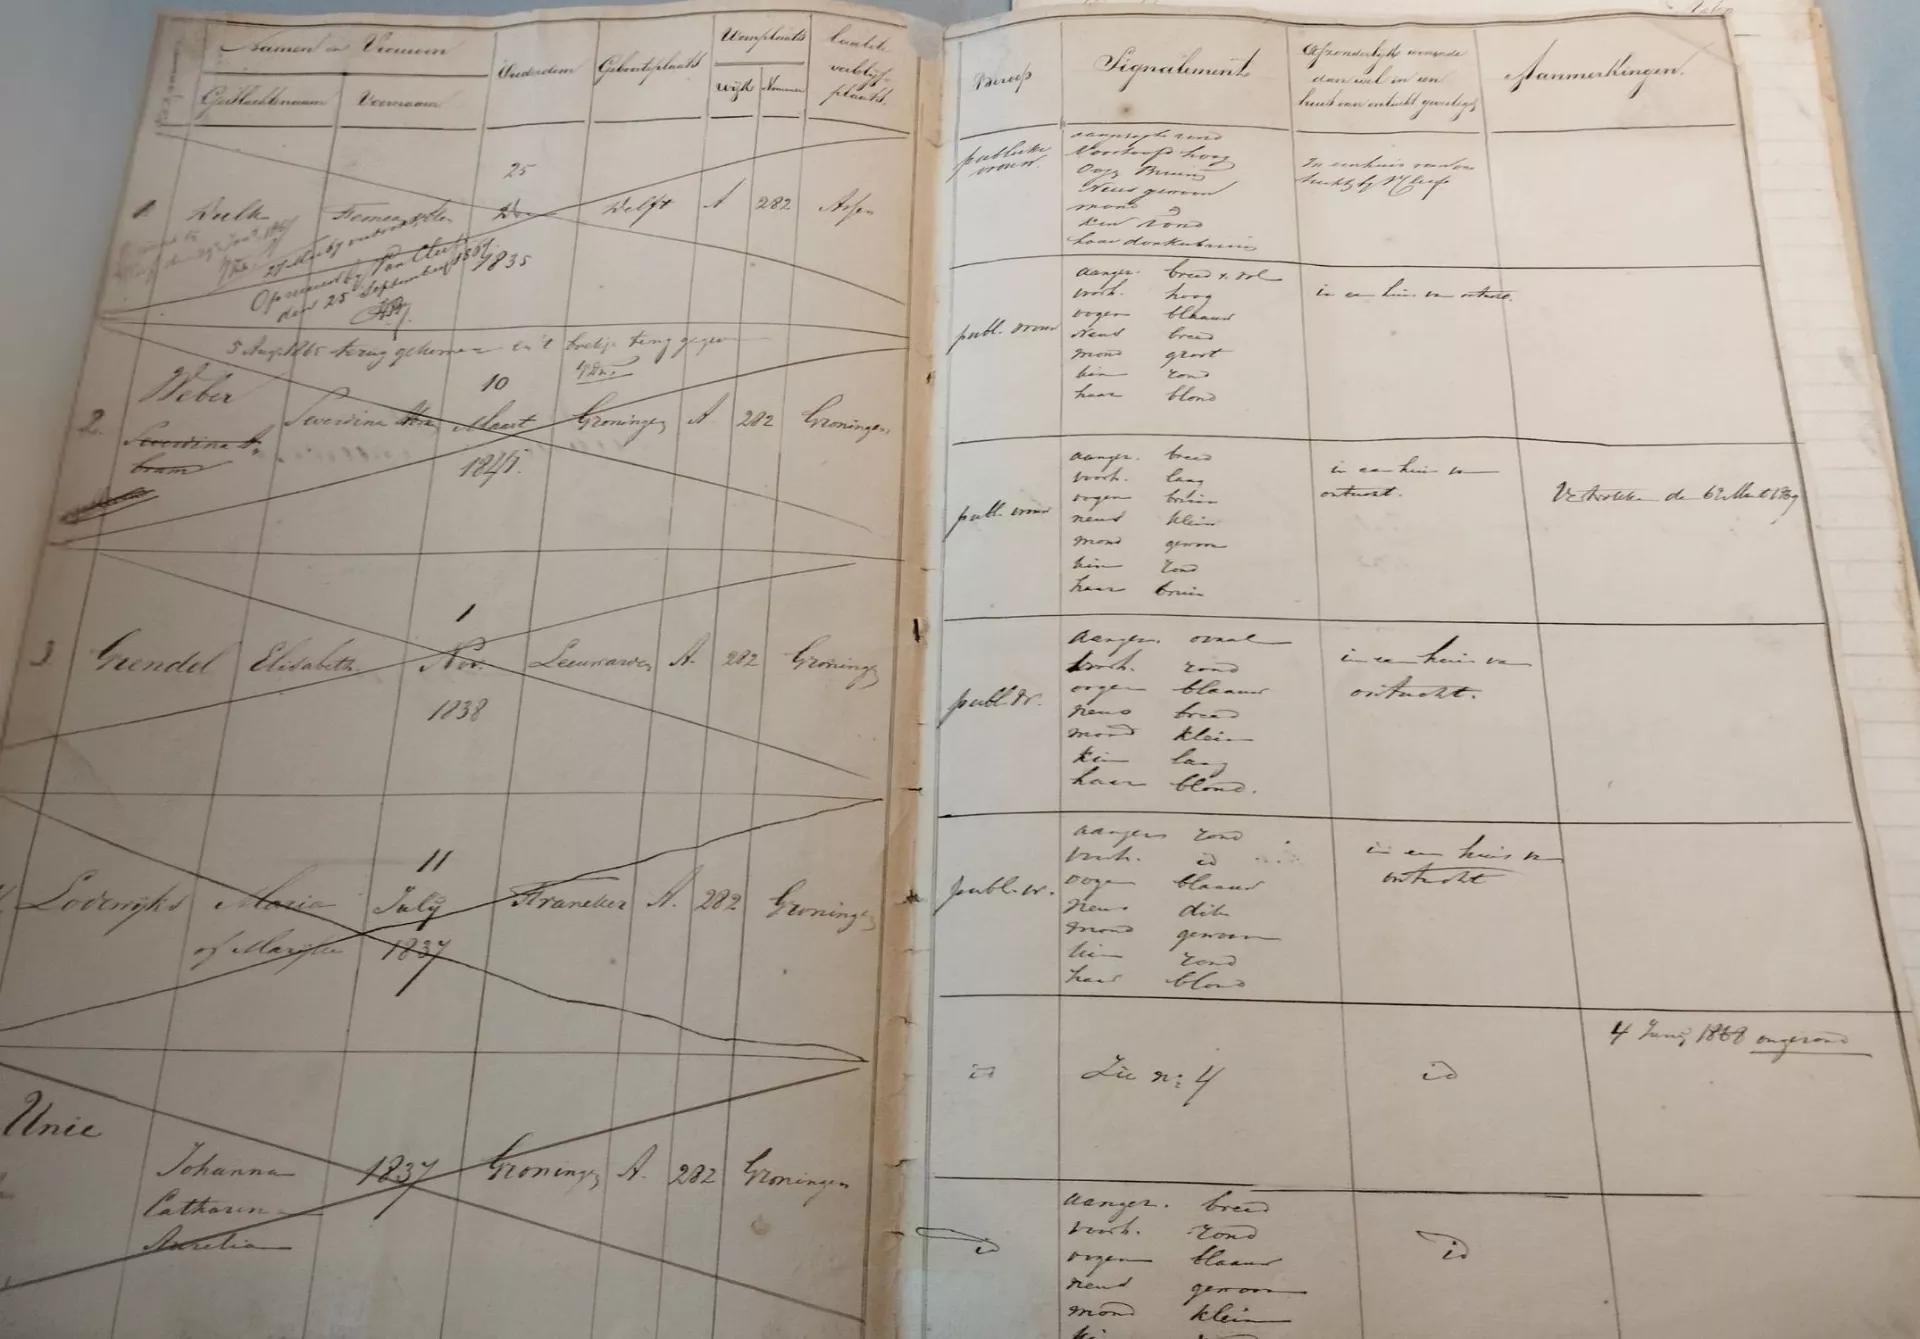 Namen en Vrouwen
Geslachtsnaam
Voornaam
Ouderdom
Geboorteplaats
Woonplaats
wijk
Nummer
Laatste
verblijf-
plaats.
Beroep
Signalement
Afzonderlijk wonende
dan wel in een
huis van ontucht gevestigd
Aanmerkingen.
1
25
1835
Delft
A
282
Assen
Opgenomen bij Van Cleef
den 25 September 1867
publieke
vrouw.
aangezigt rond
Voorhoofd hoog
Oogen Bruin
Neus gewoon
mond
Kin rond
haar donkerbruin
In een huis van on
5 Aug 1865 terug gekomen en 't boekje terug gegeven
2.
Weber
Severdina
10
Maart
1845.
Groningen
A
282
Groningen
publ. vrouw
aangez. breed & vol
voorh. hoog
oogen blaauw
Neus breed
mond groot
kin rond
haar blond
in een huis van ontucht.
3
Grendel
Elisabeth
1
Nov.
1838
Leeuwarden
A.
282
Groningen
publ. vrouw
aangez. breed
voorh. laag
oogen bruin
neus klein
mond gewoon
kin rond
haar bruin
in een huis van
ontucht.
Vertrokken den 6 Maart
Lodewijks
Maria
of Marijke
11
July
1837
Franeker
A.
282
Groningen
publ. vr.
aangez. ovaal
voorh. rond
oogen blaauw
neus breed
mond klein
kin lang
haar blond.
in een huis van
ontucht.
Unie
Johanna
Catharina
Aurelia
1837
Groningen
A.
282
Groningen
publ. vr.
aangez rond
voorh. id
oogen blaauw
neus dik
mond gewoon
kin rond
haar blond
in een huis van
ontucht
id
Zie no: 4
id
4 Juny 1868 ongezond
id
aangez. breed
voorh. rond
oogen blaauw
neus gewoon
mond klein
id